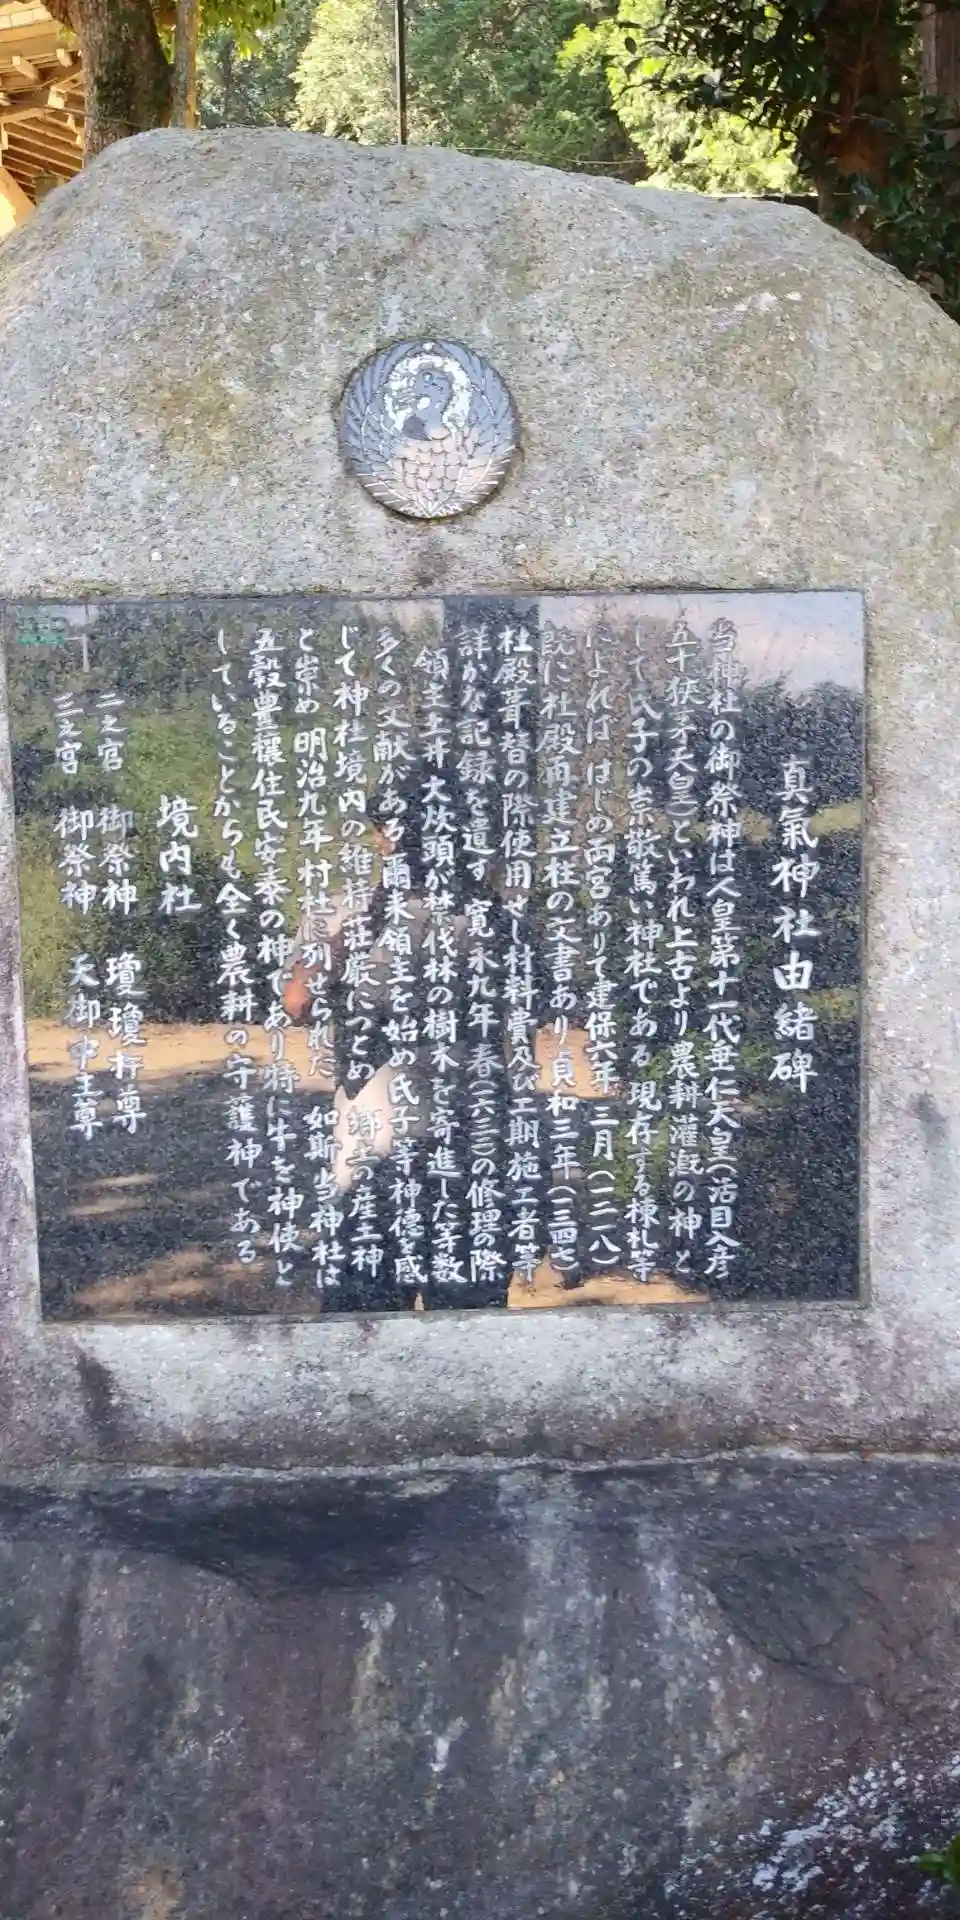 真氣神社由緒碑
当神社の御祭神は人皇第十一代垂仁天皇(活目入彦
五十狭茅天皇)といわれ上古より農耕灌漑の神と
して氏子の崇敬篤い神社である 現存する棟札等
によれば、はじめ両宮ありて建保六年三月(一二一八)
既に社殿再建立柱の文書あり貞和三年(一三四七)
社殿葺替の際使用せし材料費及び工期施工者等
詳かな記録を遺す 寛永九年春(一六三二)の修理の際
領主土井大炊頭が禁伐林の樹木を寄進した等数
多くの文献がある 爾来領主を始め氏子等神徳を感
じて神社境内の維持荘厳につとめ 郷土の産土神
と崇め 明治九年村社に列せられた 如斯当神社は
五穀豊穣住民安泰の神であり特に牛を神使と
していることからも全く農耕の守護神である
境内社
二之宮 御祭神 瓊瓊杵尊
三之宮 御祭神 天御中主尊